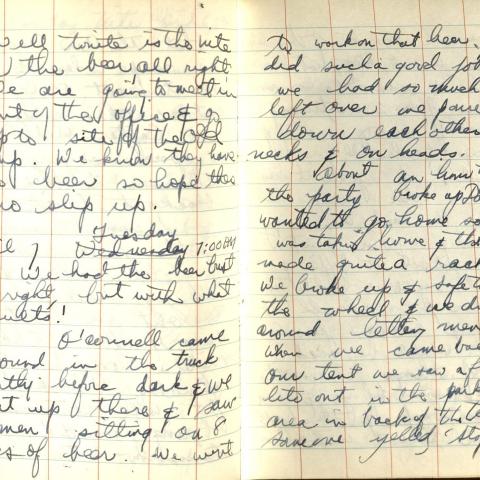 ell tonite is the nite
) the beer all right
e are going to meet in
nt of the office & go
p to site of the old
mp. We know they have
beer so hope there
no slip up.
Tuesday
Wednesday 7:00 PM
We had the beer bust
right, but with what
ults!
O'connell came
ound in the truck
tly before dark & we
t up there & saw
men sitting on 8
s of beer. We went
to work on that beer.
did such a good jo
we had so much
left over we pour
down each other
necks & on heads.
About an hour
the party broke up
wanted to go home so
was taken home & the
made quite a rack
We broke up & safe
the wheel & we d
around letting men
when we came bac
our tent we saw a f
lits out in the park
area in back of the
someone yelled "stop